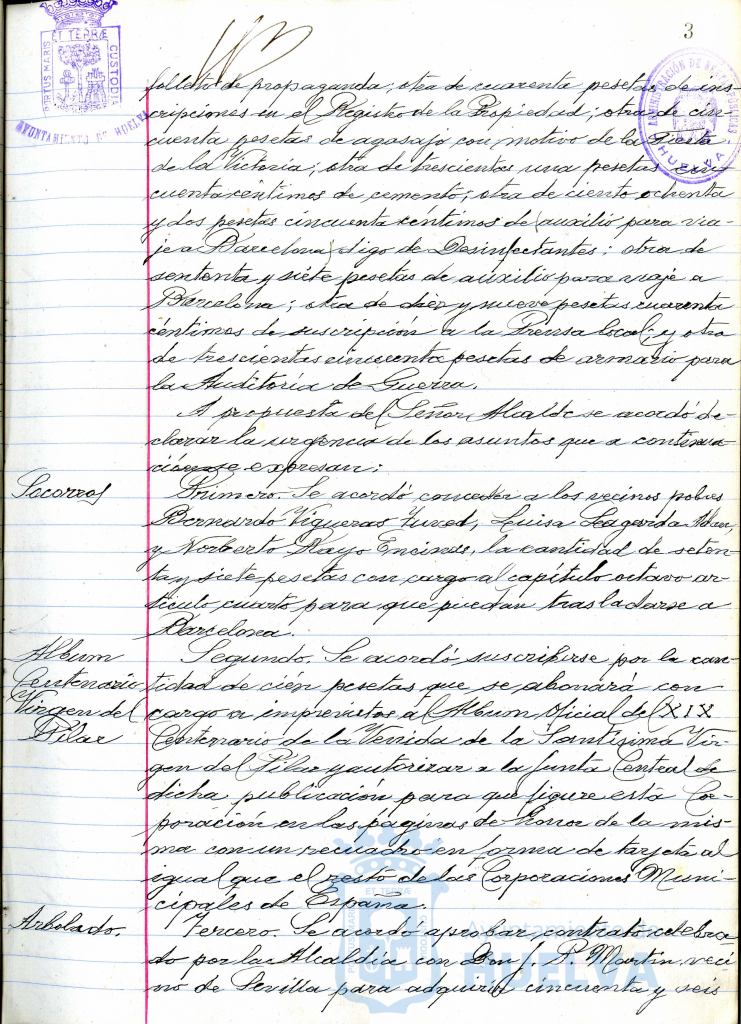 3
PORTUS MARIS ET TERRÆ CUSTODIA
AYUNTAMIENTO DE HUELVA
HUELVA
folleto de propaganda; otra de cuarenta pesetas de ins-
cripciones en el Registro de la Propiedad; otra de cin-
cuenta pesetas de agasajo con motivo de la Fiesta
de la Victoria; otra de trescientas una pesetas cin-
cuenta céntimos de cemento; otra de ciento ochenta
y dos pesetas cincuenta céntimos de (auxilio para via-
je a Barcelona) digo de Desinfectantes; otra de
sententa y siete pesetas de auxilio para viaje a
Barcelona; otra de diez y nueve pesetas cuarenta
céntimos de suscripción a la Prensa local; y otra
de trescientas cincuenta pesetas de armario para
la Auditoria de Guerra.
A propuesta del Señor Alcalde se acordó de-
clarar la urgencia de los asuntos que a continua-
ción se expresan:
Socorros
Primero. Se acordó conceder a los vecinos pobres
Bernardo Vigueras, Luisa
y Norberto Rayo Encinas, la cantidad de seten-
ta y siete pesetas con cargo al capítulo octavo ar-
tículo cuarto para que puedan trasladarse a
Barcelona.
Album
Centenario
Virgen del
Pilar
Segundo. Se acordó suscribirse por la can-
tidad de cién pesetas que se abonará con
cargo a imprevistos al Album Oficial del XIX
Centenario de la Venida de la Santísima Vir-
gen del Pilar y autorizar a la Junta Central de
dicha publicación para que figure esta Cor-
poración en las páginas de honor de la mis-
ma con un recuadro en forma de tarjeta al
igual que el resto de las Corporaciones Muni-
cipales de España.
Arbolado.
Tercero. Se acordó aprobar contrato celebra-
do por la Alcaldía con Don J. P. Martin, veci-
no de Sevilla para adquirir cincuenta y seis
Ayuntamiento de
HUELVA